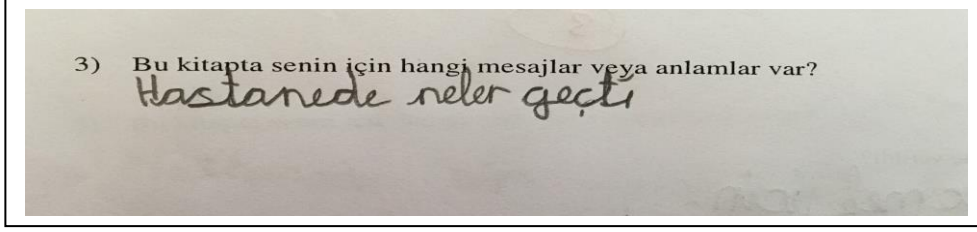 3) Bu kitapta senin için hangi mesajlar veya anlamlar var?
Hastanede neler geçti